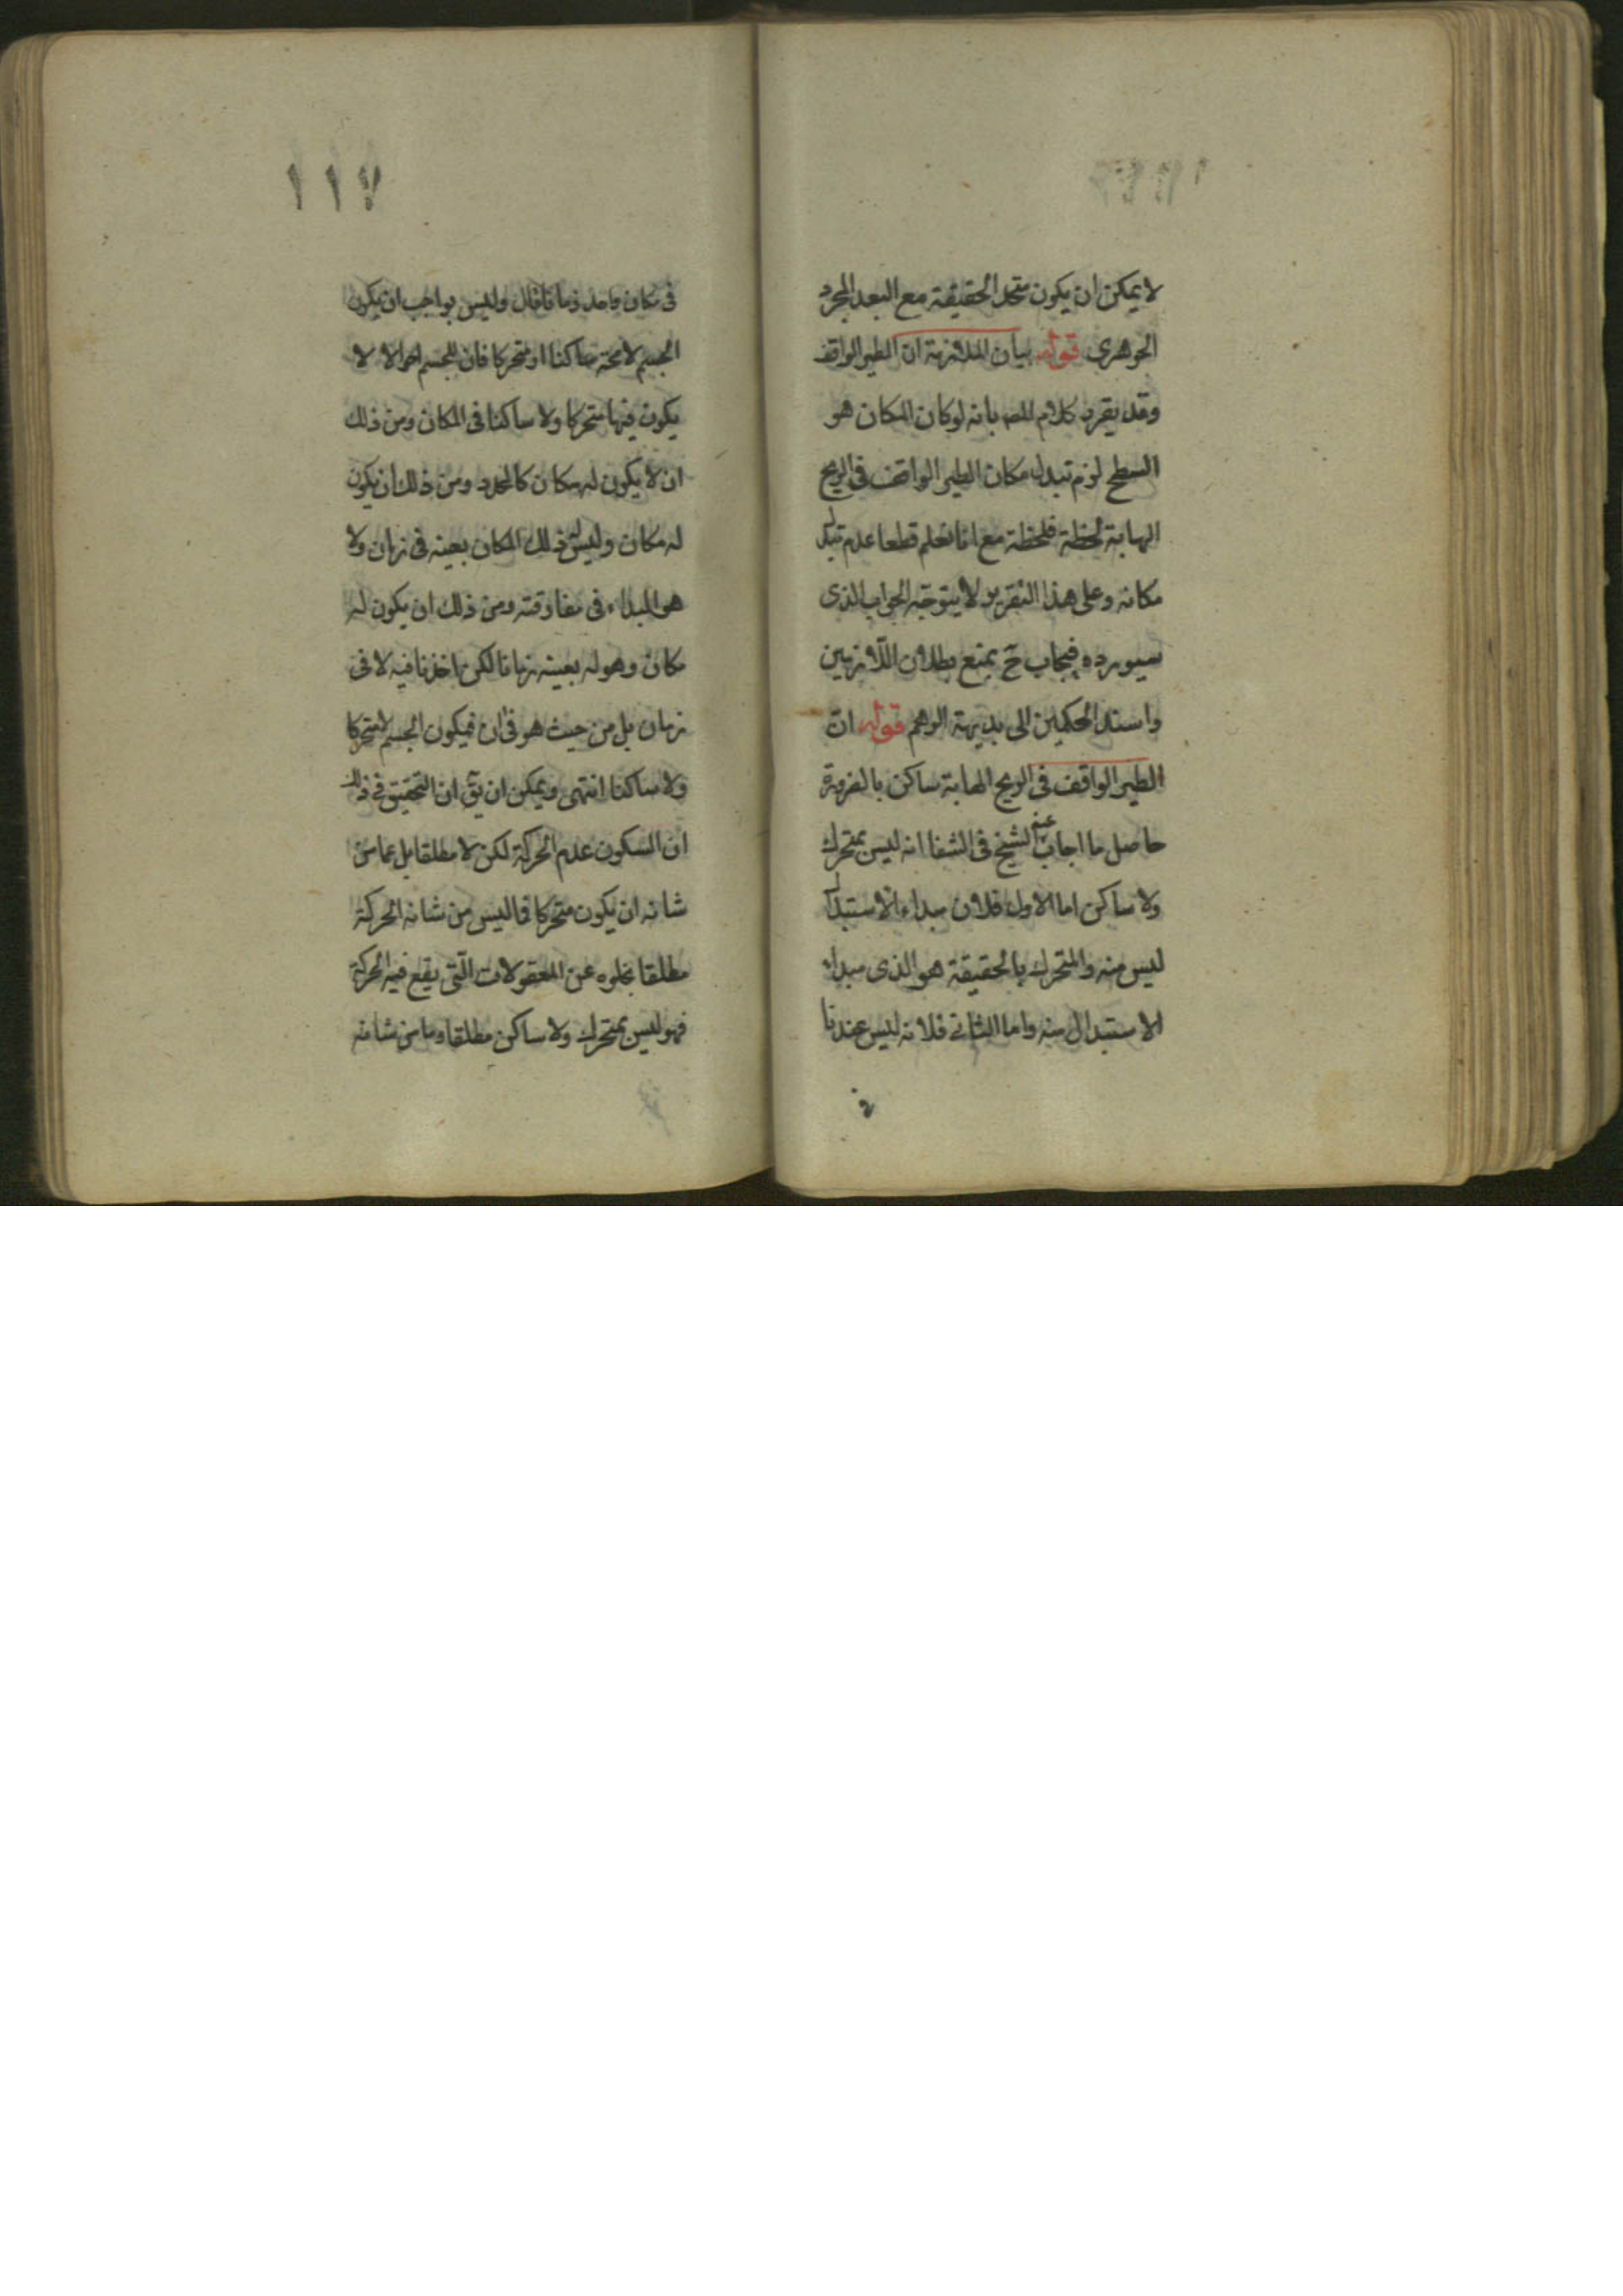 لا يمكن ان يكون متحد الحقيقة مع البعد المجرد
الجوهري قوله بيان الملازمة ان الطير الواقف
وقد يقرر كلام المصـ بانه لو كان المكان هو
السطح لزم تبدل مكان الطير الواقف في الريح
الهابة لحظة فلحظة مع انا نعلم قطعا عدم تبدل
مكانه وعلى هذا التقرير لا يتوجه الجواب الذى
سيورده فيجاب ح بمنع بطلان اللازمين
واسند الحكمين الى بديهة الوهم قوله ان
الطير الواقف في الريح الهابة ساكن بالضرورة
حاصل ما اجاب عنه الشيخ في الشفا انه ليس بمتحرك
ولا ساكن اما الاول فلان مبداء الاستبدال
ليس منه والمتحرك بالحقيقة هو الذى مبداء
الاستبدال منه واما الثاني فلانه ليس عندنا
في
١١٧
في مكان واحد زمانا قال وليس بواجب ان يكون
الجسم لا محة ساكنا او متحركا فان للجسم احوالا لا
يكون فيها متحركا ولا ساكنا في المكان ومن ذلك
ان لا يكون له مكان كالمحدد ومن ذلك ان يكون
له مكان وليس له ذلك المكان بعينه في زمان ولا
هو المبداء في مفارقته ومن ذلك ان يكون له
مكان وهو له بعينه زمانا لكن اخذنا فيه لا في
زمان بل من حيث هو في ان فيكون الجسم لا متحركا
ولا ساكنا انتهى ويمكن ان يق ان التحقيق في ذلك
ان السكون عدم الحركة لكن لا مطلقا بل عما من
شانه ان يكون متحركا فما ليس من شانه الحركة
مطلقا بخلوه عن المعقولات التي يقع فيه الحركة
فهو ليس بمتحرك ولا ساكن مطلقا وما من شانه